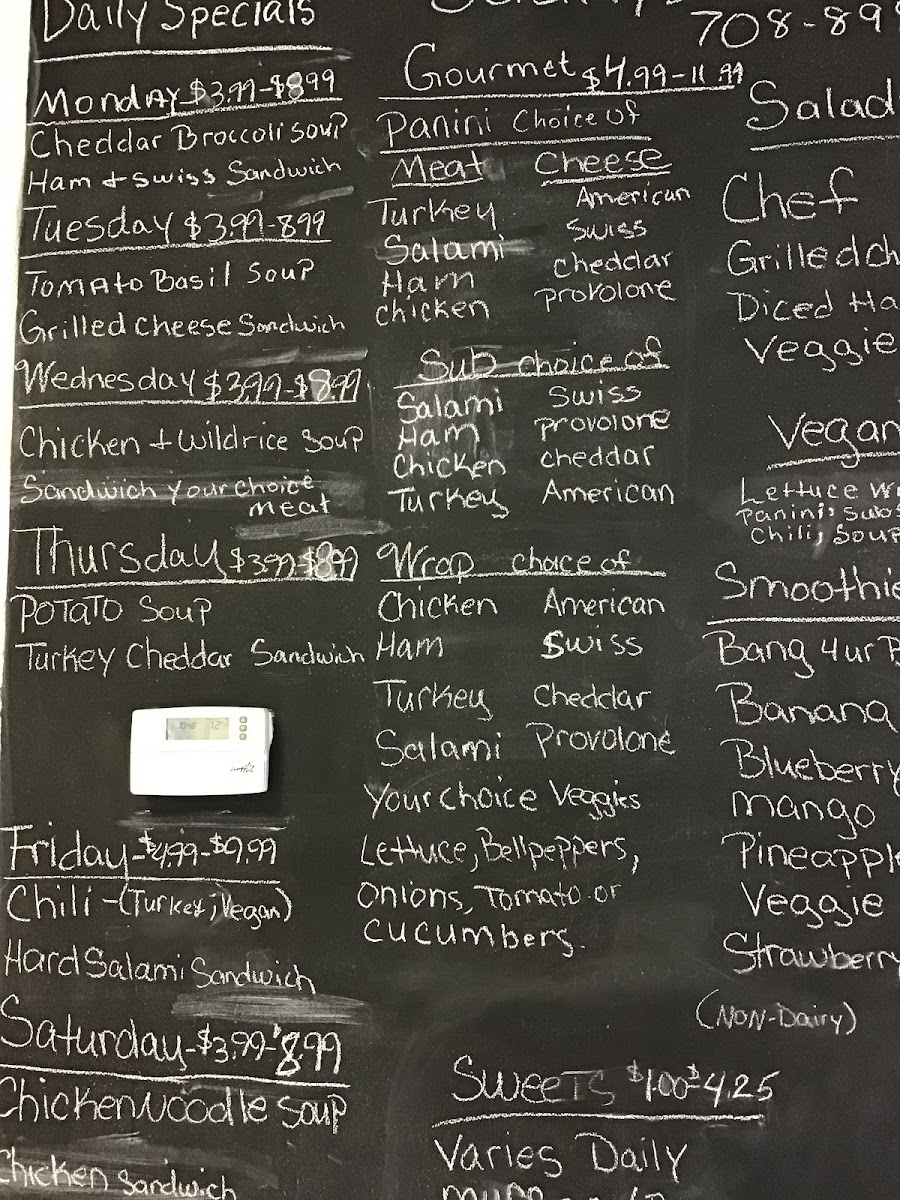 Daily Specials
Monday $3.99-$8.99
Cheddar Broccoli soup
Ham + swiss Sandwich
Tuesday $3.99-8.99
Tomato Basil Soup
Grilled cheese Sandwich
Wednesday $3.99-$8.99
Chicken + wildrice soup
Sandwich your choice
meat
Thursday $3.99-$8.99
Potato Soup
Turkey Cheddar Sandwich
Friday-$4.99-$9.99
Chili-(Turkey; Vegan)
Hard Salami Sandwich
Saturday-$3.99-$8.99
Chicken Noodle Soup
Chicken Sandwich
Gourmet $4.99-11.99
Panini Choice of
Meat Cheese
Turkey American
Salami Swiss
Ham cheddar
chicken provolone
Sub choice of
Salami Swiss
Ham provolone
Chicken cheddar
Turkey American
Wrap choice of
Chicken American
Ham Swiss
Turkey Cheddar
Salami Provolone
Your choice Veggies
Lettuce, Bellpeppers,
Onions, Tomato or
cucumbers
Sweets $1.00-$4.25
Varies Daily
708-89
Salad
Chef
Grilled ch
Diced Ha
Veggie
Vegan
Lettuce Wr
Paninis Subs
Chili, Soup
Smoothie
Bang 4 ur B
Banana
Blueberry
Mango
Pineappl
Veggie
Strawberry
(Non-Dairy)